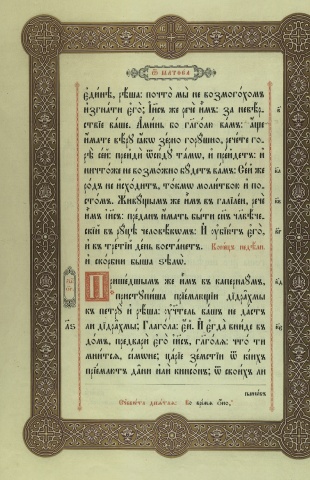 Ѿ МАТѲЕА
є҆ди́нѣ, рѣ́ша: почто̀ мы̀ не возмого́хомъ
и҆згна́ти є҆го̀; І҆и҃съ же речѐ и҆̀мъ: за невѣ́р-
ствіе ва́ше. А҆ми́нь бо гл҃го́лю ва́мъ: а҆́ще
и҆́мате вѣ́рꙋ ꙗ҆́кѡ зе́рно горꙋ́шно, рече́те го-
рѣ̀ се́й: прейдѝ ѿсю́дꙋ та́мѡ, и҆ пре́йдетъ: и҆
ничто́же невозмо́жно бꙋ́детъ ва́мъ: Се́й же
ро́дъ не и҆схо́дитъ, то́кмѡ моли́твою и҆ по-
сто́мъ. Живꙋ́щымъ же и҆̀мъ въ галїле́и, речѐ
и҆̀мъ і҆и҃съ: пре́данъ и҆́мать бы́ти сн҃ъ чл҃вѣ́че-
скїй въ рꙋ́цѣ человѣ́кѡмъ: И҆ ᲂу҆бїю́тъ є҆го̀,
и҆ въ тре́тїй де́нь воста́нетъ. Коне́цъ недѣ́ли.
и҆ ско́рбни бы́ша ѕѣлѡ̀.
Прише́дшымъ же и҆̀мъ въ капернаꙋ́мъ,
пристꙋпи́ша прїе́млющїи дїдра́хмы
къ петро́ви и҆ рѣ́ша: ᲂу҆чи́тель ва́шъ не да́стъ
ли дїдра́хмы; Гл҃го́ла: є҆́й. И҆ є҆гда̀ вни́де въ
до́мъ, предварѝ є҆го̀ і҆и҃съ, гл҃го́лѧ: что́ ти
мни́тсѧ, сі́мѡне; ца́рїе зе́мстїи ѿ кі́ихъ
прїе́млютъ да́ни и҆лѝ кинсо́нъ; ѿ свои́хъ ли
сынѡ́въ